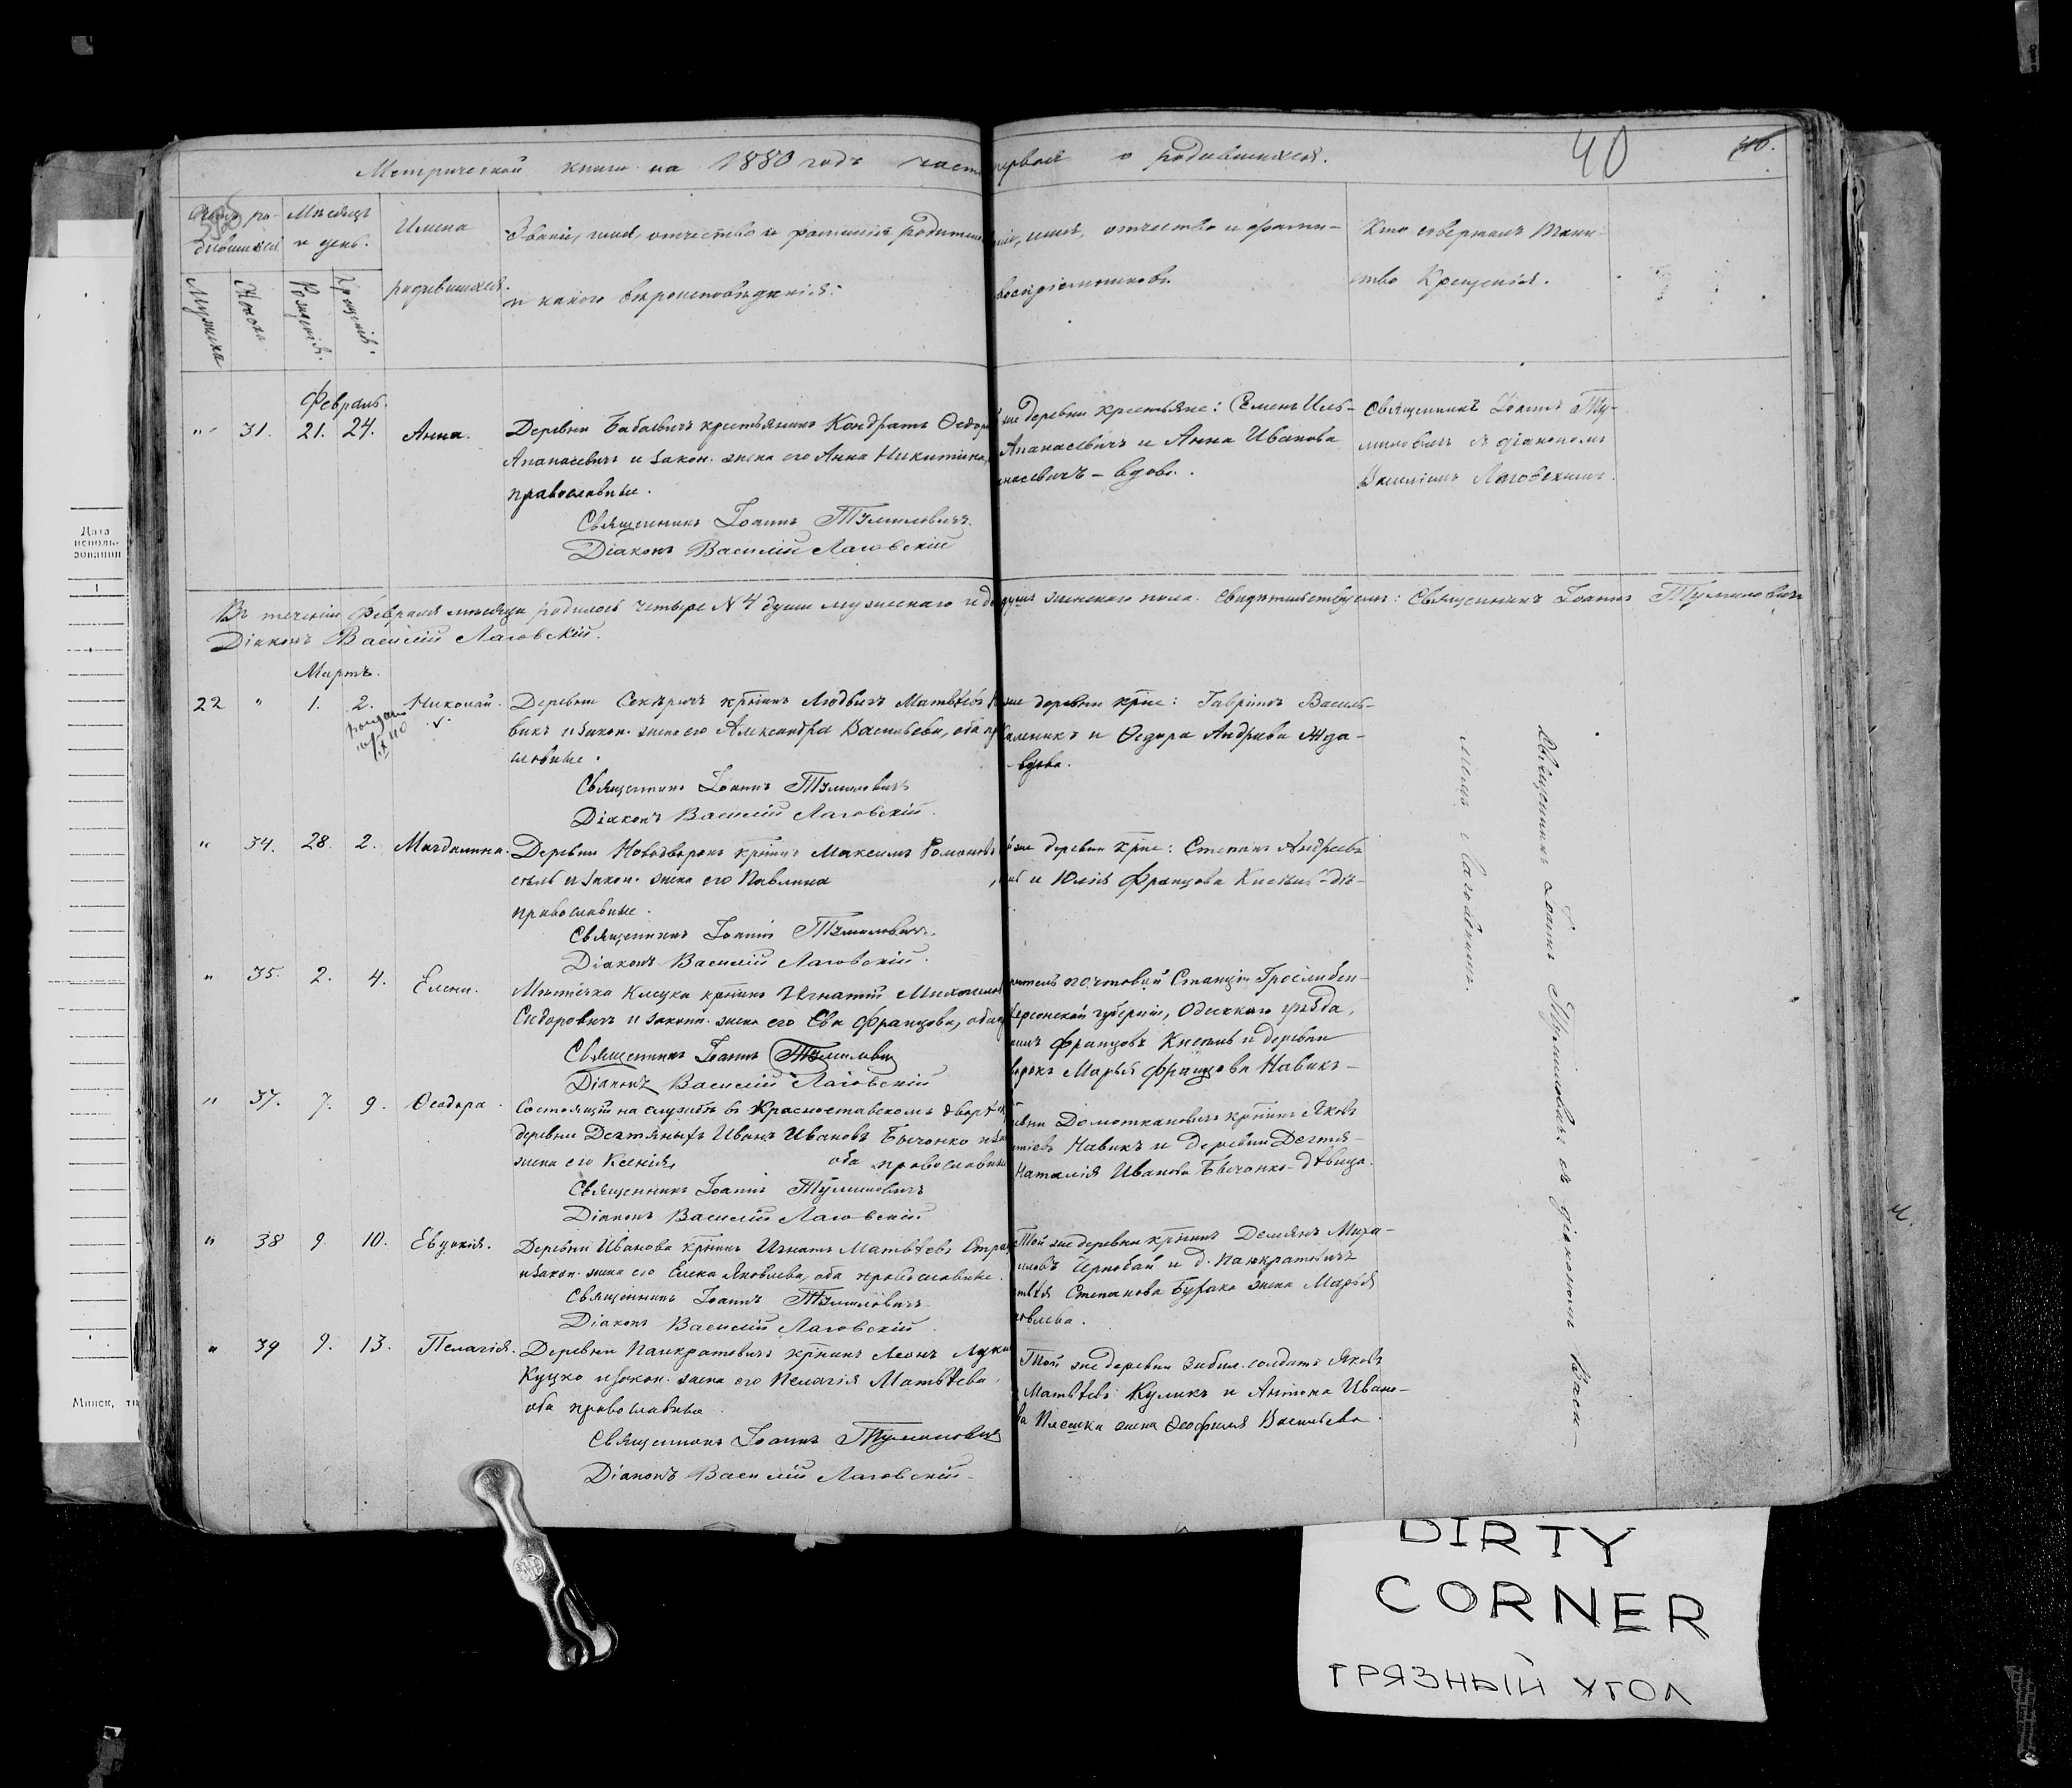 Метрической книги на 1880 годъ часть первая о родившихся.
40
Мѣсяцъ
и день.
Мужска
Женска
Рожденія.
Крещенія.
Имена
родившихся.
Званіе, имя, отчество и фамилія родителей
и какого вѣроисповѣданія.
имя, отчество и фами-
воспріемниковъ.
Кто совершалъ таин-
ство Крещенія.
Февраль.
" 31. 21. 24. Анна.
Деревни Бабаевичъ крестьянинъ Кондратъ Ѳедоровъ
Апанасевичъ и закон. жена его Анна Никитина,
православные.
Священникъ Іоаннъ Тумиловичъ.
Діаконъ Василій Лаговскій
же деревни крестьяне: Семенъ
Апанасевичъ и Анна Иванова
насевичъ – вдова.
Священникъ Іоаннъ Ту-
миловичъ съ діакономъ
Василіемъ Лаговскимъ.
Въ теченіи Февраля мѣсяца родилось четыре № 4 души мужескаго и душъ женскаго пола. Свидѣтельствуемъ: Священникъ Іоаннъ Тумиловичъ
Діаконъ Василій Лаговскій.
Мартъ.
22 " 1. 2. Николай.
Деревни крнинъ Людвигъ Матвѣевъ
викъ и закон. жена его Александра Васильева, оба пр
славные.
Священникъ Іоаннъ Тумиловичъ
Діаконъ Василій Лаговскій.
же деревни крне: Гавріилъ Василь-
и Ѳедора Андреева Жда-
вдова.
" 34. 28. 2. Магдалина.
Деревни Новодворокъ крнинъ Максимъ Романовъ
и закон. жена его Павлина
православные.
Священникъ Іоаннъ Тумиловичъ.
Діаконъ Василій Лаговскій.
же деревни крне: Степанъ Андреевъ
и Юлія Францова дѣ-
" 35. 2. 4. Елена.
Мѣстечка Клецка крнинъ Игнатій Михайловъ
Сидоровичъ и законн. жена его Ева Францова, оба
Священникъ Іоаннъ Тумиловичъ
Діаконъ Василій Лаговскій
почтовой Станціи
Херсонской губерніи, Одесскаго уѣзда,
Францовъ и деревни
Марья Францова Навикъ –
" 37. 7. 9. Ѳеодора.
Состоящій на службѣ въ Красноставскомъ дворѣ
деревни Дегтяныхъ Иванъ Ивановъ Бычонко и
жена его Ксенія, оба православные
Священникъ Іоаннъ Тумиловичъ
Діаконъ Василій Лаговскій
Домоткановичъ крнинъ Яковъ
Навикъ и деревни Дегтя-
Наталія Иванова Бычонко – дѣвица.
" 38 9 10. Евдокія.
Деревни Иванова крнинъ Игнатъ Матвѣевъ
и закон. жена его Елена Яковлева, оба православные.
Священникъ Іоаннъ Тумиловичъ
Діаконъ Василій Лаговскій
Той же деревни крнинъ Демянъ Миха-
иловъ и д. Панкратовичъ
Степанова Бурака жена Марья
Яковлева.
" 39 9. 13. Пелагія.
Деревни Панкратовичъ крнинъ Леонъ
Куцко и закон. жена его Пелагія Матвѣева,
оба православные
Священникъ Іоаннъ Тумиловичъ
Діаконъ Василій Лаговскій
Той же деревни солдатъ Яковъ
Матвѣевъ Куликъ и Антона Ивано-
ва жена Ѳеофила Васильева.
Священникъ Іоаннъ Тумиловичъ съ діакономъ Васи-
ліемъ Лаговскимъ.
Дата
исполь-
зования
1
Минск, ти
DIRTY
CORNER
ГРЯЗНЫЙ УГОЛ